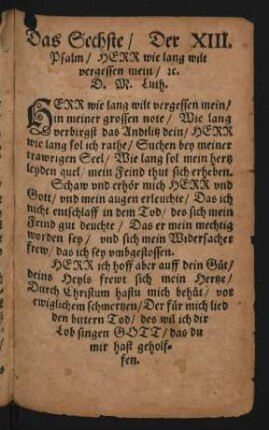 Das Sechste / Der XIII.
Psalm / HERR wie lang wilt
vergessen mein / ꝛc.
D. M. Luth.
HERR wie lang wilt vergessen mein /
in meiner grossen note / Wie lang
verbirgst das Andilitz dein / HERR
wie lang sol ich rathe / Suchen bey meiner
trawrigen Seel / Wie lang sol mein hertz
leyden quel / mein Feind thut sich erheben.
Schaw vnd erhör mich HERR vnd
Gott / vnd mein augen erleuchte / Das ich
nicht entschlaff in dem Tod / des sich mein
Feind gut deuchte / Das er mein mechtig
worden sey / vnd sich mein Widersacher
frew / das ich sey vmbgestossen.
HERR ich hoff aber auff dein Güt /
deins Heyls frewt sich mein Hertze /
Durch Christum hastu mich behüt / vor
ewiglichem schmertzen / Der für mich lied
den bittern Tod / des wil ich dir
Lob singen GOTT / das du
mir hast geholf-
fen.